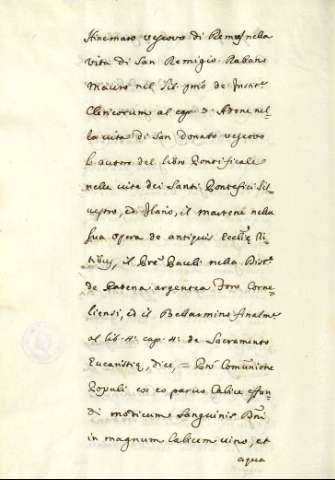 Itinemaro vescovo di Rems nella
vita di San Remigio. Rabano
Mauro nel lib. pmo de Instit.
Clericorum al cap. 9. Adone nel-
la vita di San Donato vescovo
l'autore del libro Pontificale
nelle vite dei Santi Pontefici Sil-
vestro, ed Ilario, il martene nella
sua opera de antiquis Ecclię Ri-
tibus, il Pre Pauli nella Diss.
de Patena argentea Foro Corne-
liensi, ed il Bellarmino finalme
al lib. 4. cap. 4. de Sacramento
Eucaristię, dice, = Communione
Populi eos ex parvo Calice effun-
di modicum Sanguinis Dni
in magnum Calicem vino, et
aqua